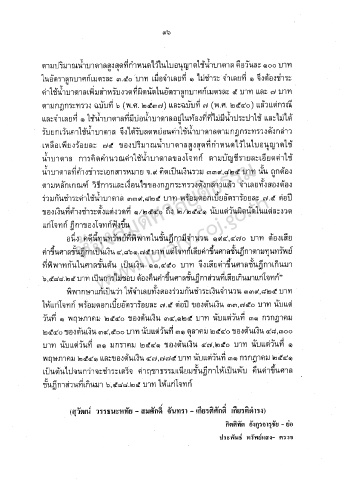 ๑๖
ตามปริมาณน้ำบาดาลสูงสุดที่กำหนดไว้ในใบอนุญาตใช้น้ำบาดาล คือวันละ ๑๐๐ บาท
ในอัตราลูกบาศก์เมตรละ ๓.๕๐ บาท เมื่อจำเลยที่ ๑ ไม่ชำระ จำเลยที่ ๑ จึงต้องชำระ
ค่าใช้น้ำบาดาลเพิ่มสำหรับงวดที่ผิดนัดในอัตราลูกบาศก์เมตรละ ๕ บาท และ ๗ บาท
ตามกฎกระทรวง ฉบับที่ ๖ (พ.ศ. ๒๕๓๗) และฉบับที่ ๗ (พ.ศ. ๒๕๔๐) แล้วแต่กรณี
และจำเลยที่ ๑ ใช้น้ำบาดาลที่มีบ่อน้ำบาดาลอยู่ในท้องที่ที่ไม่มีน้ำประปาใช้ และไม่ได้
รับยกเว้นค่าใช้น้ำบาดาล จึงได้รับลดหย่อนค่าใช้น้ำบาดาลตามกฎกระทรวงดังกล่าว
เหลือเพียงร้อยละ ๗๕ ของปริมาณน้ำบาดาลสูงสุดที่กำหนดไว้ในใบอนุญาตใช้
น้ำบาดาล การคิดคำนวณค่าใช้น้ำบาดาลของโจทก์ ตามบัญชีรายละเอียดค่าใช้
น้ำบาดาลที่ค้างชำระเอกสารหมาย จ.๙ คิดเป็นเงินรวม ๓๓๙,๘๒๕ บาท นั้น ถูกต้อง
ตามหลักเกณฑ์ วิธีการและเงื่อนไขของกฎกระทรวงดังกล่าวแล้ว จำเลยทั้งสองต้อง
ร่วมกันชำระค่าใช้น้ำบาดาล ๓๓๙,๘๒๕ บาท พร้อมดอกเบี้ยอัตราร้อยละ ๗.๕ ต่อปี
ของเงินที่ค้างชำระตั้งแต่งวดที่ ๑/๒๕๔๐ ถึง ๒/๒๕๔๑ นับแต่วันผิดนัดในแต่ละงวด
แก่โจทก์ ฎีกาของโจทก์ฟังขึ้น
อนึ่ง คดีนี้ทุนทรัพย์ที่พิพาทในชั้นฎีกามีจำนวน ๑๙๔,๔๗๐ บาท ต้องเสีย
ค่าขึ้นศาลชั้นฎีกาเป็นเงิน ๔,๘๖๑.๗๕ บาท แต่โจทก์เสียค่าขึ้นศาลชั้นฎีกาตามทุนทรัพย์
ที่พิพาทกันในศาลชั้นต้น เป็นเงิน ๑๑,๔๕๐ บาท จึงเสียค่าขึ้นศาลชั้นฎีกาเกินมา
๖,๕๘๘.๒๕ บาท เป็นการไม่ชอบ ต้องคืนค่าขึ้นศาลชั้นฎีกาส่วนที่เสียเกินมาแก่โจทก์"
พิพากษาแก้เป็นว่า ให้จำเลยทั้งสองร่วมกันชำระเงินจำนวน ๓๓๙,๘๒๕ บาท
ให้แก่โจทก์ พร้อมดอกเบี้ยอัตราร้อยละ ๗.๕ ต่อปี ของต้นเงิน ๓๓,๗๕๐ บาท นับแต่
วันที่ ๑ พฤษภาคม ๒๕๔๐ ของต้นเงิน ๓๔,๑๒๕ บาท นับแต่วันที่ ๓๑ กรกฎาคม
๒๕๔๐ ของต้นเงิน ๓๔,๕๐๐ บาท นับแต่วันที่ ๓๑ ตุลาคม ๒๕๔๐ ของต้นเงิน ๔๘,๓๐๐
บาท นับแต่วันที่ ๓๑ มกราคม ๒๕๔๑ ของต้นเงิน ๔๗,๒๕๐ บาท นับแต่วันที่ ๑
พฤษภาคม ๒๕๔๑ และของต้นเงิน ๔๗,๗๗๕ บาท นับแต่วันที่ ๓๑ กรกฎาคม ๒๕๔๑
เป็นต้นไปจนกว่าจะชำระเสร็จ ค่าฤชาธรรมเนียมชั้นฎีกาให้เป็นพับ คืนค่าขึ้นศาล
ชั้นฎีกาส่วนที่เกินมา ๖,๕๘๘.๒๕ บาท ให้แก่โจทก์
(สุวัฒน์ วรรธนะหทัย - สมศักดิ์ จันทรา - เกียรติศักดิ์ เกียรติดำรง)
กิตติพิต อังกูรอารุชัย - ย่อ
ประพันธ์ ทรัพย์แสง - ตรวจ